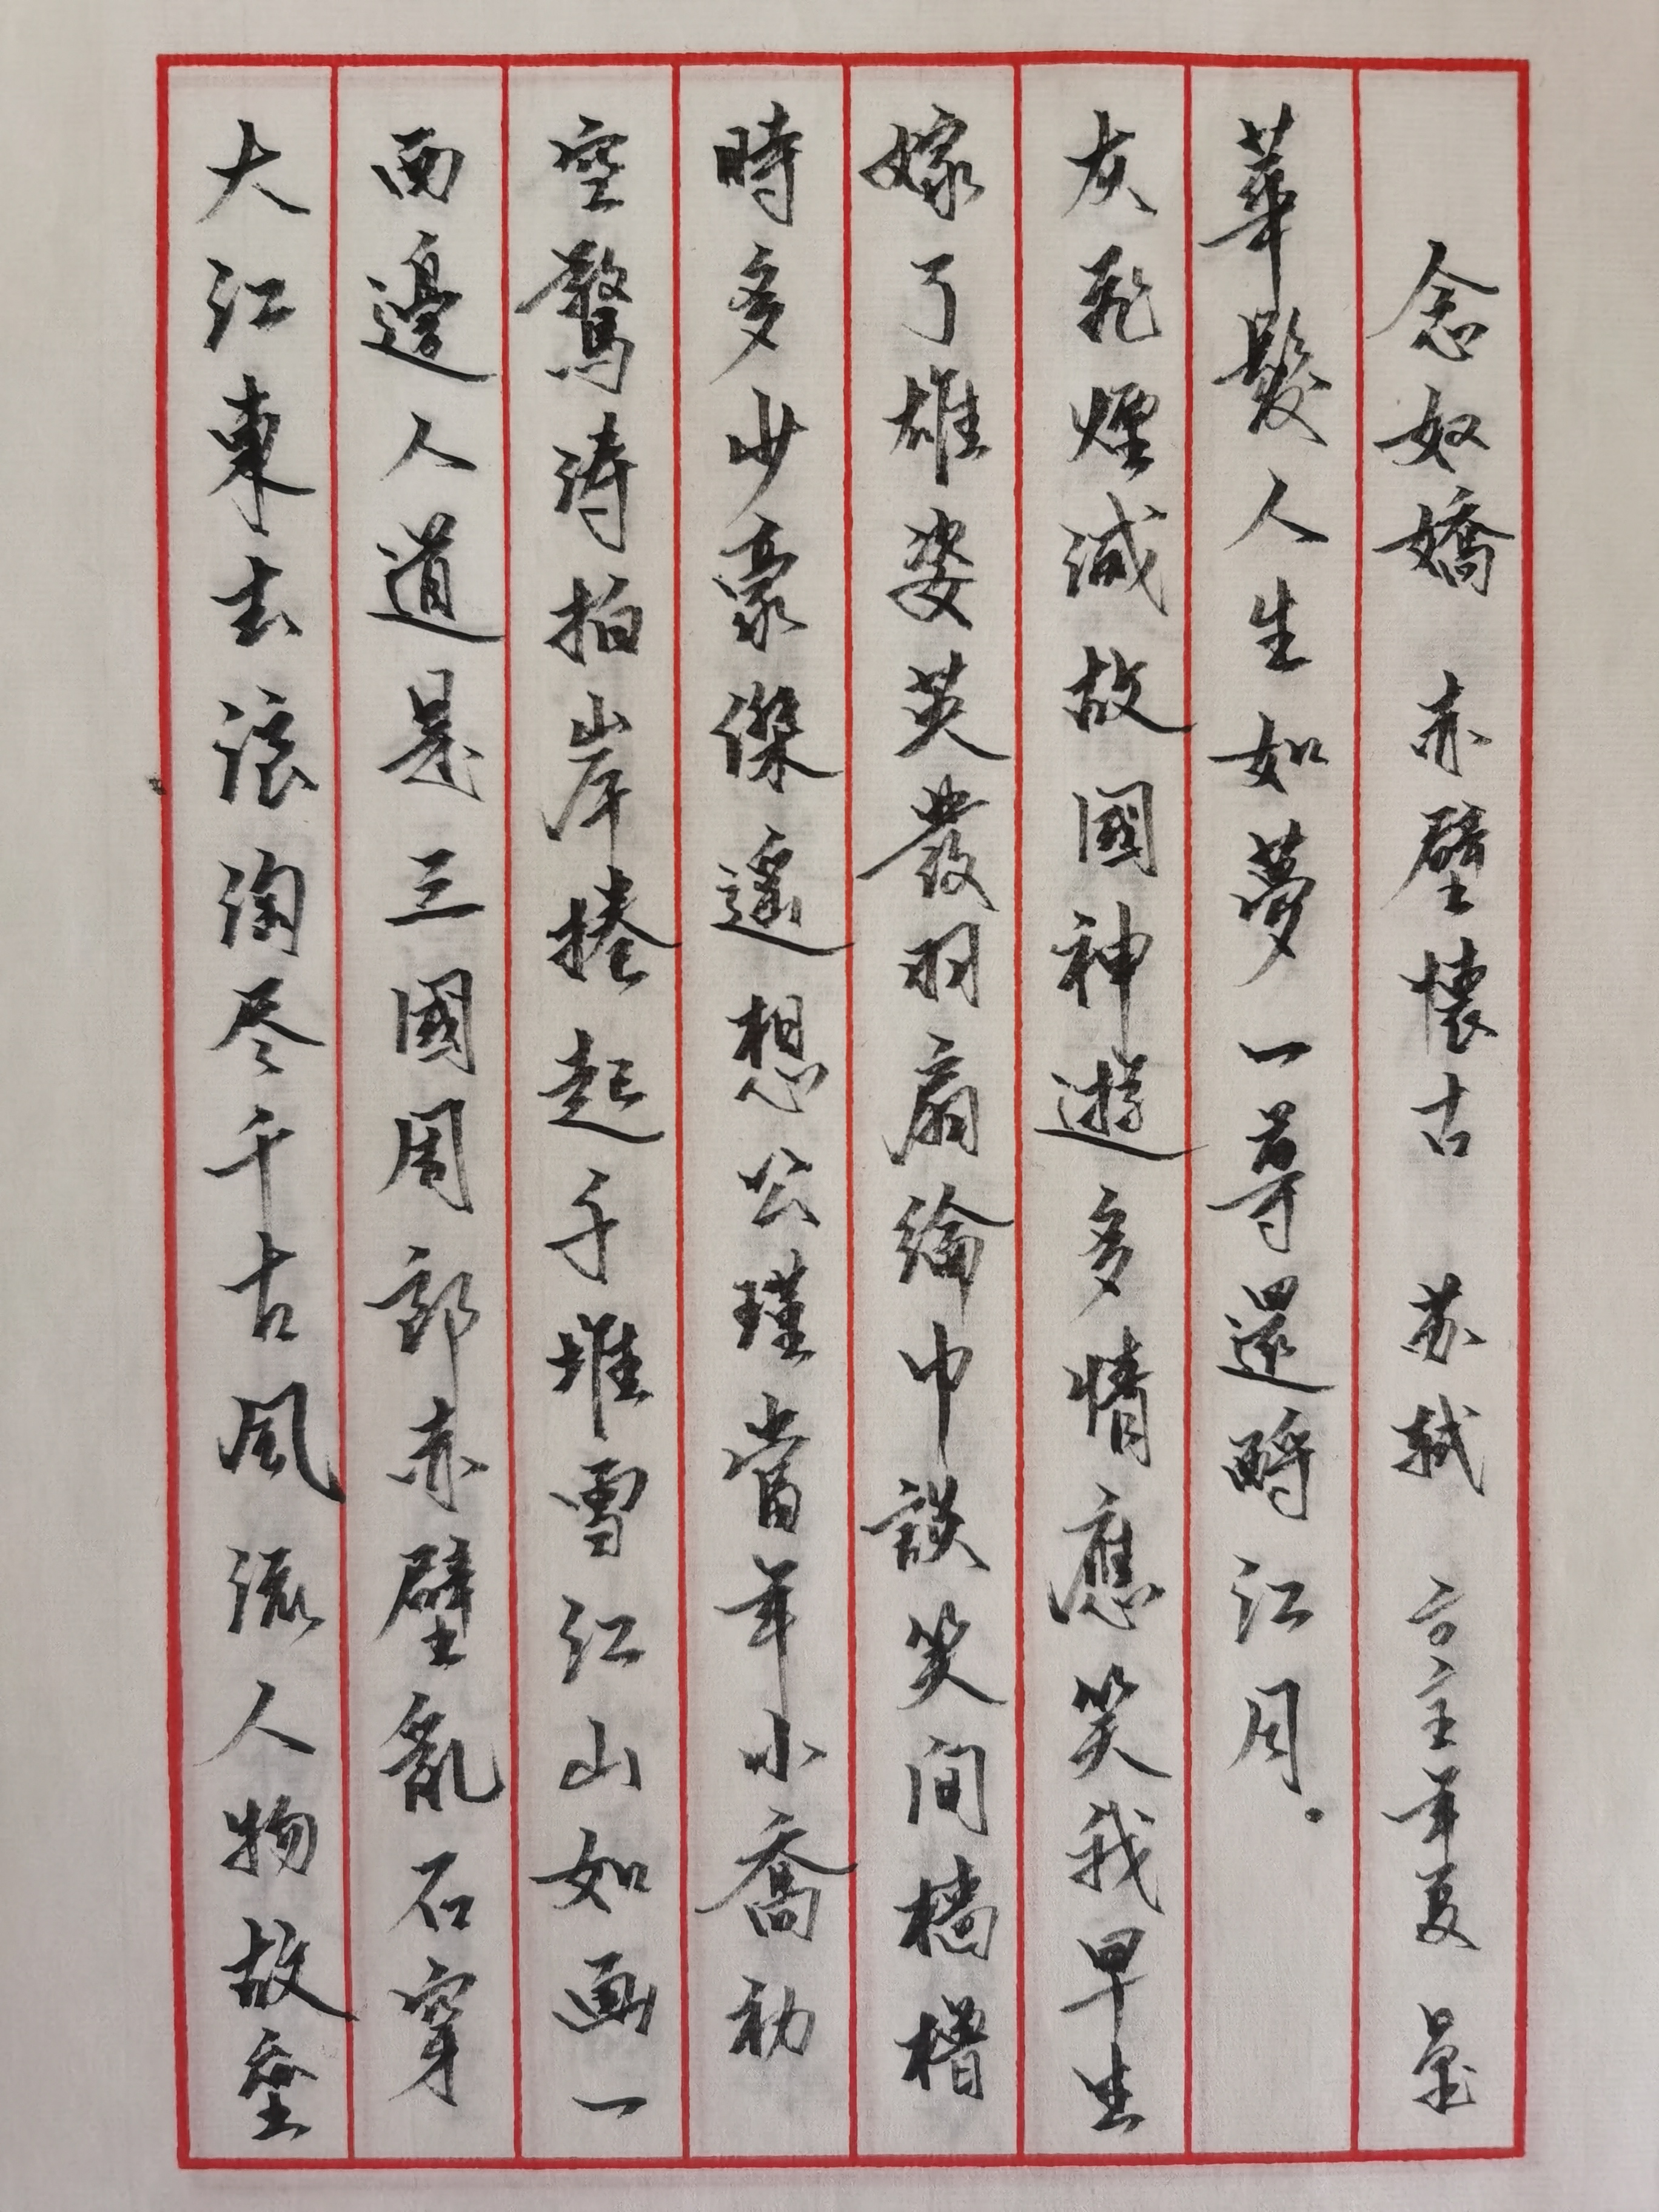 大江東去浪淘尽千古風流人物故壘
西邊人道是三國周郎赤壁亂石穿
空驚涛拍岸捲起千堆雪江山如画一
時多少豪傑遥想公瑾當年小喬初
嫁了雄姿英發羽扇綸巾談笑间檣櫓
灰飛煙滅故國神遊多情應笑我早生
華髮人生如夢一尊還酹江月.
念奴嬌 赤壁懷古 苏轼 年夏